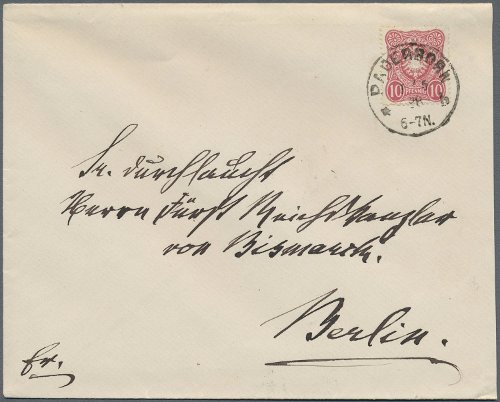 PADERBORN
10 PFENNIG 10
6-7N.
Sr. Durchlaucht
Herrn Fürst Reichskanzler
von Bismarck.
Berlin.
fr.